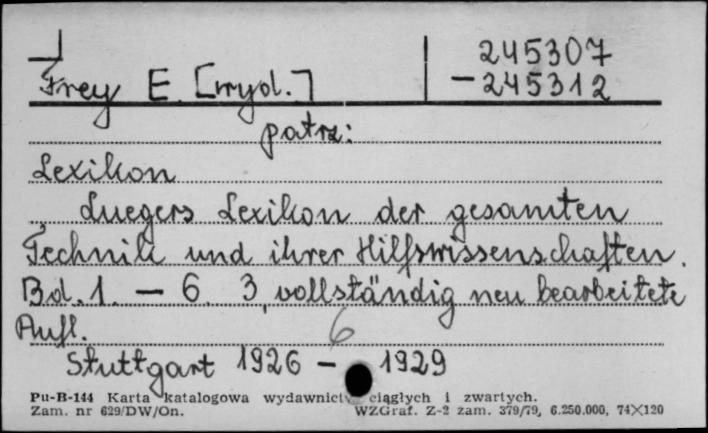 245307
Frey E. [wyd.] — 245312
patrz:
Lexikon
Luegers Lexikon der gesamten
Technik und ihrer Hilfswissenschaften.
Bd. 1. — 6. 3, vollständig neu bearbeitete
Aufl. 6
Stuttgart 1926 — 1929
Pu-B-144 Karta katalogowa wydawnictw ciągłych i zwartych.
Zam. nr 629/DW/On. WZGraf. Z-2 zam. 379/79, 6.250.000, 74×120